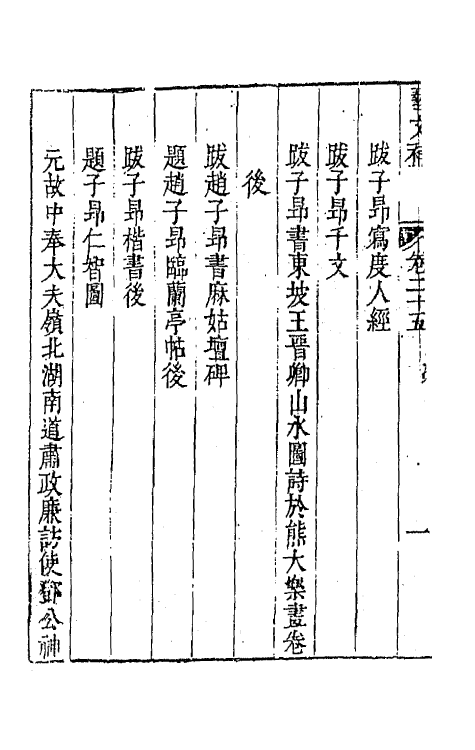 卷二十五
一
跋子昻寫度人經
跋子昻千文
跋子昻書東坡王晉卿山水圖詩於熊大樂畫卷
後
跋趙子昻書麻姑壇碑
題趙子昻臨蘭亭帖後
跋子昻楷書後
題子昻仁智圖
元故中奉大夫嶺北湖南道肅政廉訪使鄧公神